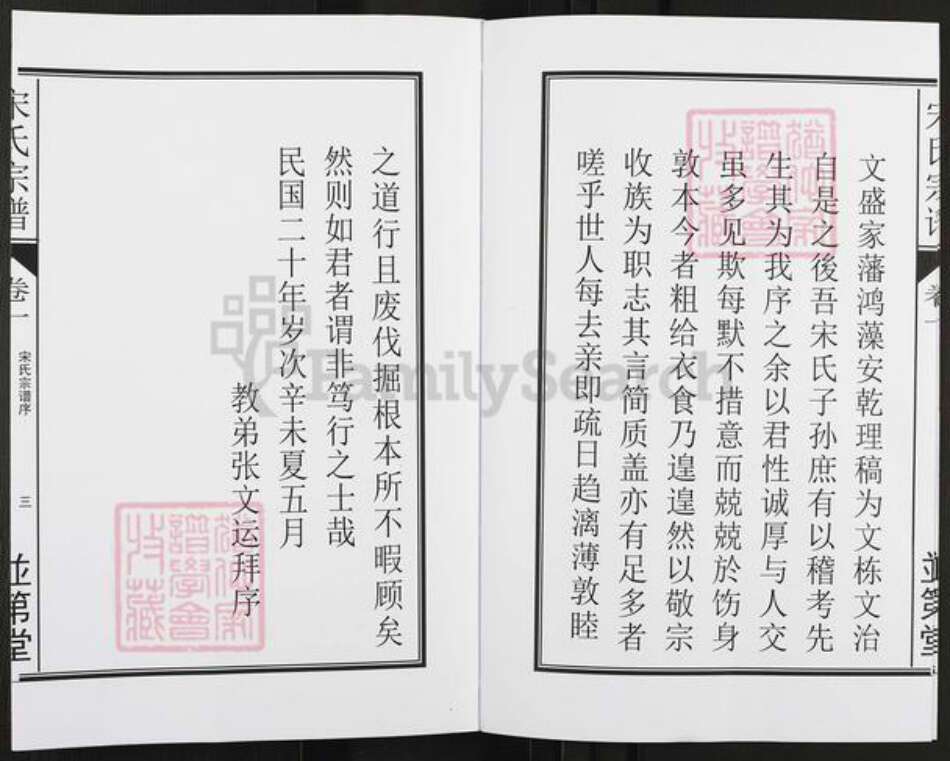 宋氏宗谱
卷一
並第堂
文盛家藩鸿藻安乾理稿为文栋文治
自是之後吾宋氏子孙庶有以稽考先
生其为我序之余以君性诚厚与人交
虽多见欺每默不措意而兢兢於饬身
敦本今者粗给衣食乃遑遑然以敬宗
收族为职志其言简质盖亦有足多者
嗟乎世人每去亲即疏日趋漓薄敦睦
之道行且废伐掘根本所不暇顾矣
然则如君者谓非笃行之士哉
民国二十年岁次辛未夏五月
教弟张文运拜序
宋氏宗谱
卷一
宋氏宗谱序
三
並第堂
FamilySearch